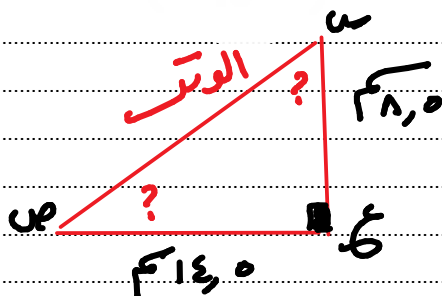 س
الوتر
؟
٨,٥ سم
؟
ص
ع
١٤,٥ سم